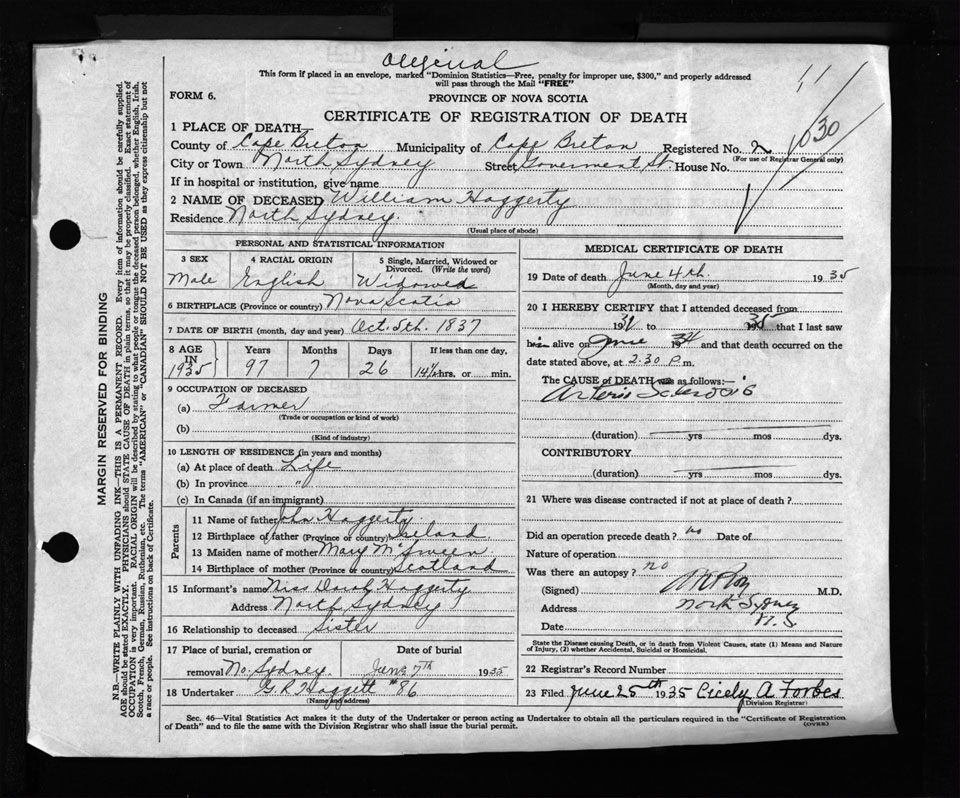 Original
This form if placed in an envelope, marked "Dominion Statistics—Free, penalty for improper use, $300," and properly addressed
will pass through the Mail "FREE"
FORM 6.
PROVINCE OF NOVA SCOTIA
CERTIFICATE OF REGISTRATION OF DEATH
1030
1 PLACE OF DEATH
County of Cape Breton Municipality of Cape Breton Registered No. 2
(For use of Registrar General only)
City or Town North Sydney Street Government St. House No.
If in hospital or institution, give name
2 NAME OF DECEASED William Haggerty
Residence North Sydney.
(Usual place of abode)
PERSONAL AND STATISTICAL INFORMATION
3 SEX 4 RACIAL ORIGIN 5 Single, Married, Widowed or
Divorced. (Write the word)
Male English Widowed
6 BIRTHPLACE (Province or country) Nova Scotia
7 DATE OF BIRTH (month, day and year) Oct. 5th. 1837
8 AGE IN 1935 Years 97 Months 7 Days 26 If less than one day, 14½ hrs. or min.
9 OCCUPATION OF DECEASED
(a) Farmer
(Trade or occupation or kind of work)
(b)
(Kind of industry)
10 LENGTH OF RESIDENCE (in years and months)
(a) At place of death Life
(b) In province "
(c) In Canada (if an immigrant)
Parents
11 Name of father John Haggerty
12 Birthplace of father (Province or country) Ireland
13 Maiden name of mother Mary McSween
14 Birthplace of mother (Province or country) Scotland
15 Informant's name Haggerty
Address North Sydney
16 Relationship to deceased Sister
17 Place of burial, cremation or Date of burial
removal No. Sydney. June 7th 1935
18 Undertaker G. R. Haggett #86
(Name and address)
MEDICAL CERTIFICATE OF DEATH
19 Date of death June 4th. 1935
(Month, day and year)
20 I HEREBY CERTIFY that I attended deceased from
19 to 1935 that I last saw
him alive on June 1934 and that death occurred on the
date stated above, at 2.30 P.m.
The CAUSE of DEATH was as follows:
Arterio Sclerosis
(duration) yrs mos dys.
CONTRIBUTORY
(duration) yrs mos dys.
21 Where was disease contracted if not at place of death?
Did an operation precede death? no Date of
Nature of operation
Was there an autopsy? no
(Signed) M.D.
Address North Sydney
Date N.S
State the Disease causing Death, or in death from Violent Causes, state (1) Means and Nature
of Injury, (2) whether Accidental, Suicidal or Homicidal.
22 Registrar's Record Number
23 Filed June 25th 1935 Cicely A Forbes
(Division Registrar)
Sec. 46—Vital Statistics Act makes it the duty of the Undertaker or person acting as Undertaker to obtain all the particulars required in the "Certificate of Registration
of Death" and to file the same with the Division Registrar who shall issue the burial permit.
(OVER)
MARGIN RESERVED FOR BINDING
N.B.—WRITE PLAINLY WITH UNFADING INK—THIS IS A PERMANENT RECORD. Every item of information should be carefully supplied.
AGE should be stated EXACTLY. PHYSICIANS should STATE CAUSE OF DEATH in plain terms, so that it may be properly classified. Exact statement of
OCCUPATION is very important. RACIAL ORIGIN will be described by stating to what people or tongue the deceased person belonged, whether English, Irish,
Scotch, French, German, Russian, Ruthenian, etc. The terms "AMERICAN" or "CANADIAN" SHOULD NOT BE USED as they express citizenship but not
a race or people. See instructions on back of Certificate.